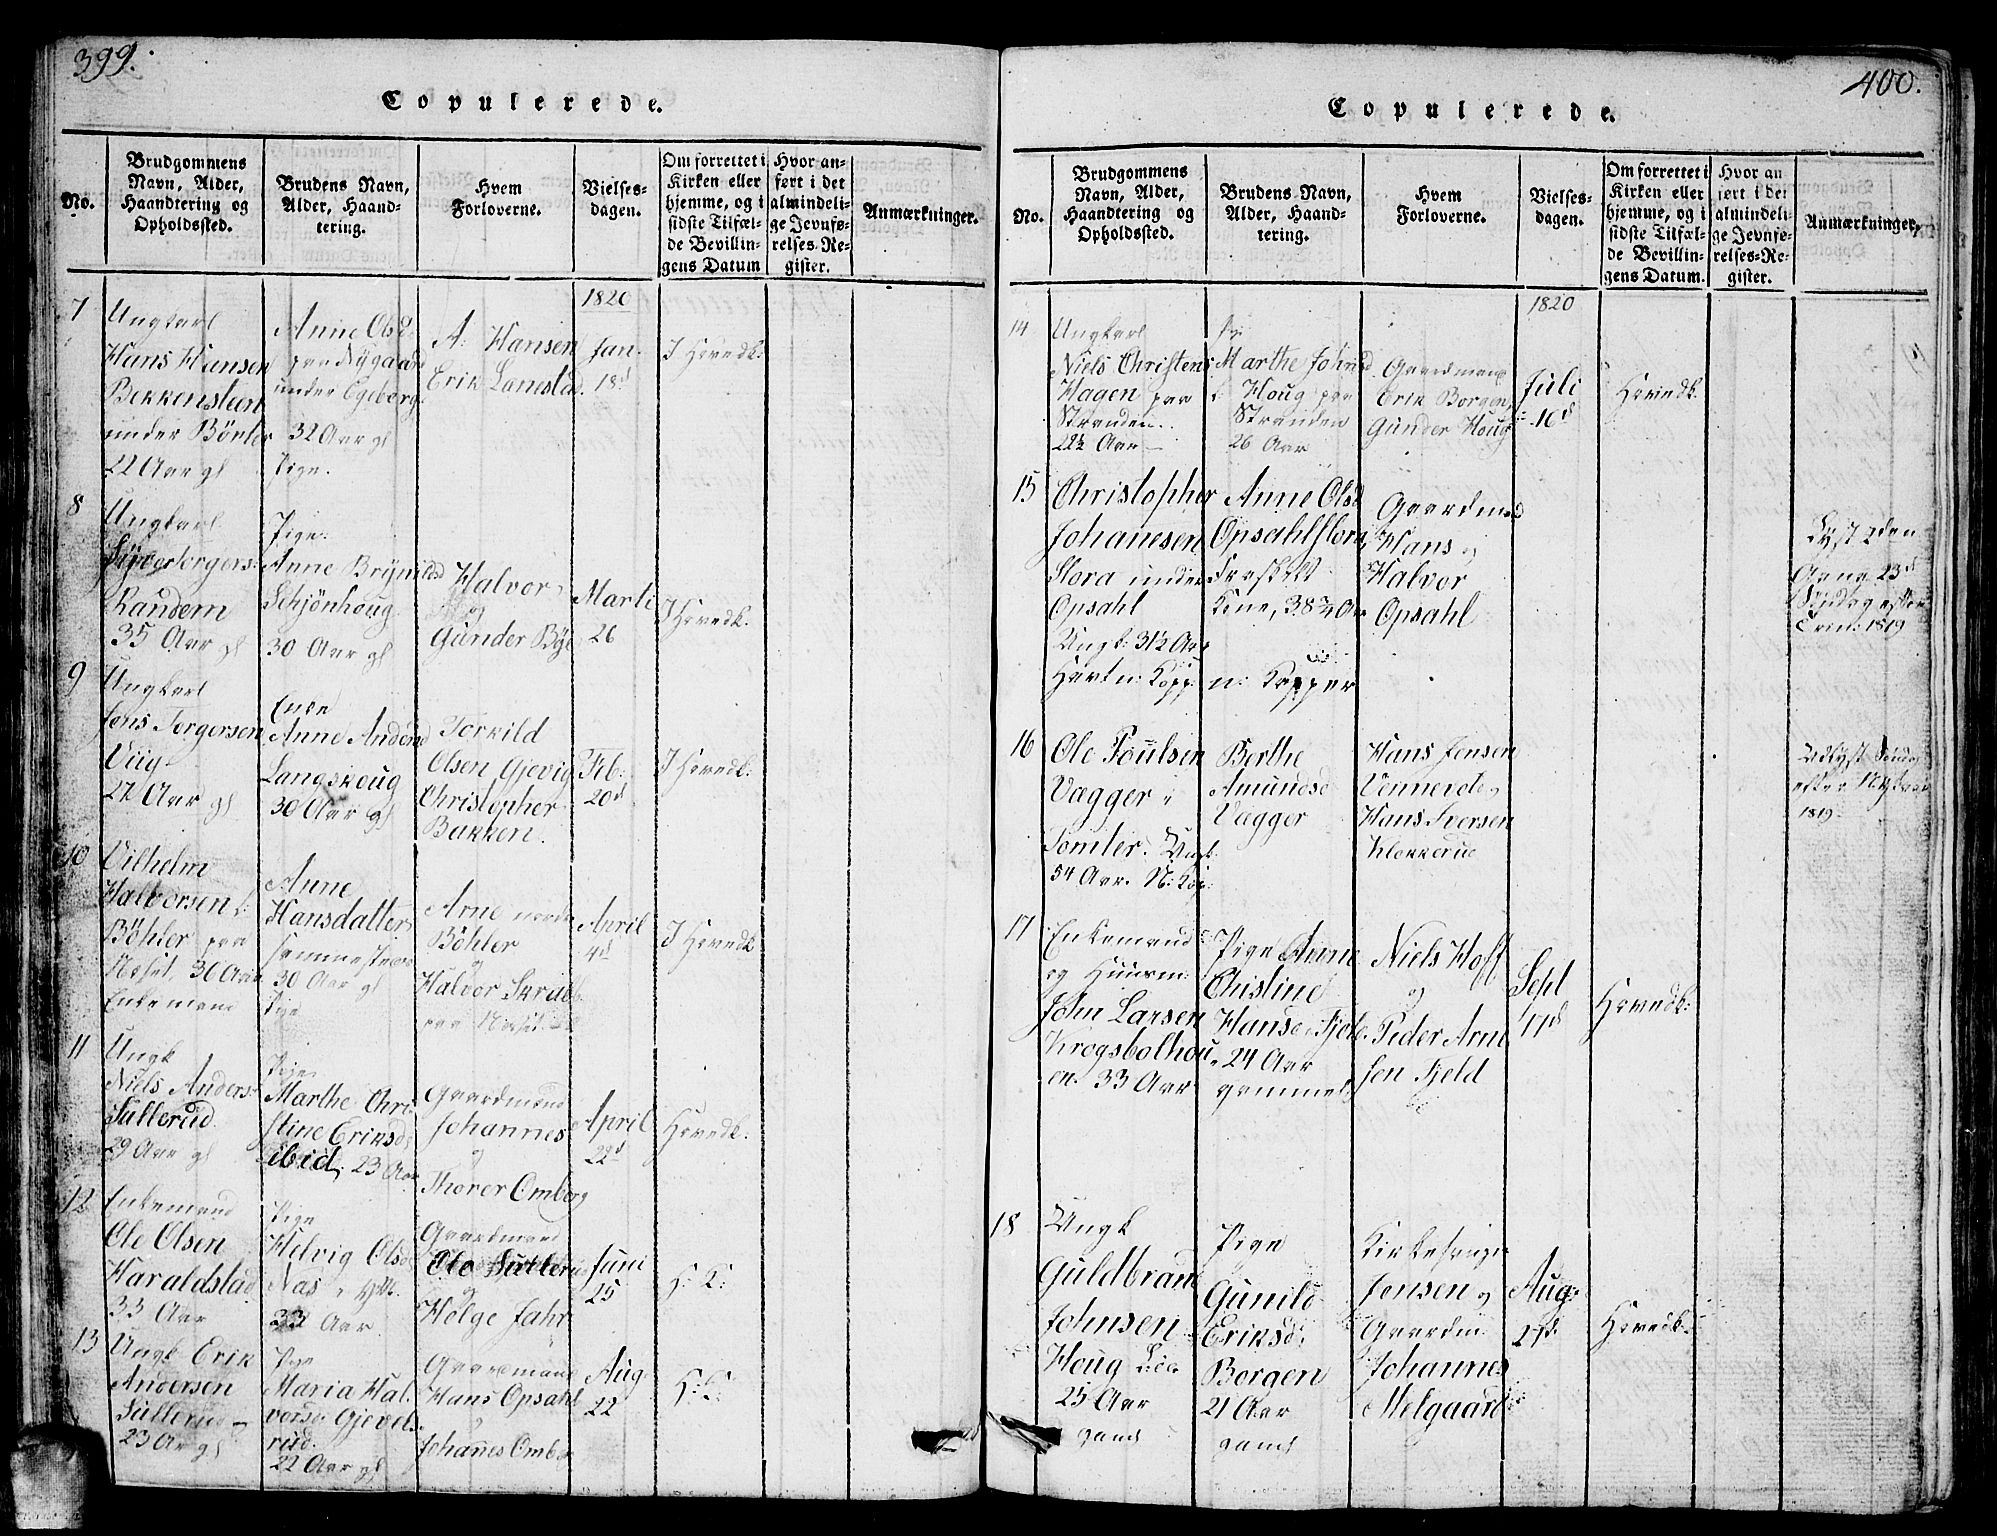 399.
Copulerede.
No.
Brudgommens
Navn, Alder,
Haandtering og
Opholdssted.
Brudens Navn,
Alder, Haand-
tering.
Hvem
Forloverne.
Vielses-
dagen.
Om forrettet i
Kirken eller
hjemme, og i
sidste Tilfæl-
de Bevillin-
gens Datum
Hvor an-
ført i det
almindeli-
ge Jevnfø-
relses-Re-
gister.
Anmærkninger.
1820
7
Ungkarl
Hans Hansen
Bekkensteen
under Börter
22 Aar gl
Anne Olsd
paa Nÿgaard
under Egeberg
32 Aar gl
Pige.
A: Hansen
Erik Lonestad
Jan.
18d
I Hovedk:
8
Ungkarl
Randem
35 Aar gl
Pige.
Anne Brÿnilds
Schjönhoug
30 Aar gl
Halvor
og
Gunder Bÿe
Marti
26
I Hovedk.
9
Ungkarl
Jens Torgersen
Viig
27 Aar gl
Enke
Anne Andersd
Langskoug
30 Aar gl
Torkild
Olsen Gjevig
Christopher
Bakken.
Feb:
20d
I Hovedk:
10
Vilhelm
Halvorsen
Böhler paa
Næset, 36 Aar
Enkemand
Anne
Hansdatter
30 Aar gl
Pige
Arne nordre
Böhler
og
Halvor
paa Næset
April
4d
I Hovedk
11
Ungk
Niels Anders:
Sullerud.
29 Aar gl
Pige.
Marthe Chri
stine Eriksd:
ibid, 23 Aar
Gaardmænd
Johannes
og
Thorer Omberg
April
22d
Hovedk.
12
Enkemand
Ole Olsen
Haraldstad
33 Aar
Pige
Helvig Olsd
Næs
33 Aar
Gaardmænd
Ole Sullerud
og
Helge Jahr
Juni
25
H: K:
13
Ungk Erik
Andersen
Sullerud
23 Aar gl
Pige
Maria Hal
vorsd. Gjevels
rud.
22 Aar gl
Gaardmænd
Hans Opsahl
og
Johañes Omberg
Aug
22
H: K:
400.
Copulerede.
No.
Brudgommens
Navn, Alder,
Haandtering og
Opholdssted.
Brudens Navn,
Alder, Haand-
tering.
Hvem
Forloverne.
Vielses-
dagen.
Om forrettet i
Kirken eller
hjemme, og i
sidste Tilfæl-
de Bevillin-
gens Datum.
Hvor an
ført i det
almindeli-
ge Jevnfø-
relses-Re-
gister.
Anmærkninger.
1820
14
Ungkarl
Niels Christens
Hagen paa
Stranden.
22½ Aar
Marthe Johnsd
Houg paa
Stranden
26 Aar
Gaardmænd
Erik Borgen,
Gunder Houg
Juli
16d
Hovedk.
15
Christopher
Johanesen
Flora under
Opsahl
Ungk: 31½ Aar
Havt n: Kopp:
Anne Olsd
Opsahlflora
Fraskilt
Kone, 38¾ Aar
n: Kopper
Gaardmænd
Hans og
Halvor
Opsahl
Lyst 2den
Gang 23d
Søndag efter
Trin: 1819
16
Ole Poulsen
Vægger i
Tomter. Ungk.
54 Aar. N: Kop:
Berthe
Amundsd
Vægger
Hans Jensen
Vennerde
Hans Iversen
Klokkerud
Udlyst Søndag
efter Nytaar
1819.
17
Enkemand
og Huusm:
John Larsen
Krogsbølhou
en. 33 Aar
Pige Anne
Christine
Hansd: Fjeld.
24 Aar
gammel
Niels Hoff
og
Peder Arne
sen Fjeld
Sept
17d
Hovedk:
18
Ungk
Guldbrand
Johnsen
Houg
25 Aar
gaml
Pige
Gunild
Eriksd:
Borgen
21 Aar
gaml
Kirkesanger
Jensen og
Gaardm
Johannes
Melgaard
Aug:
27d.
Hovedk: